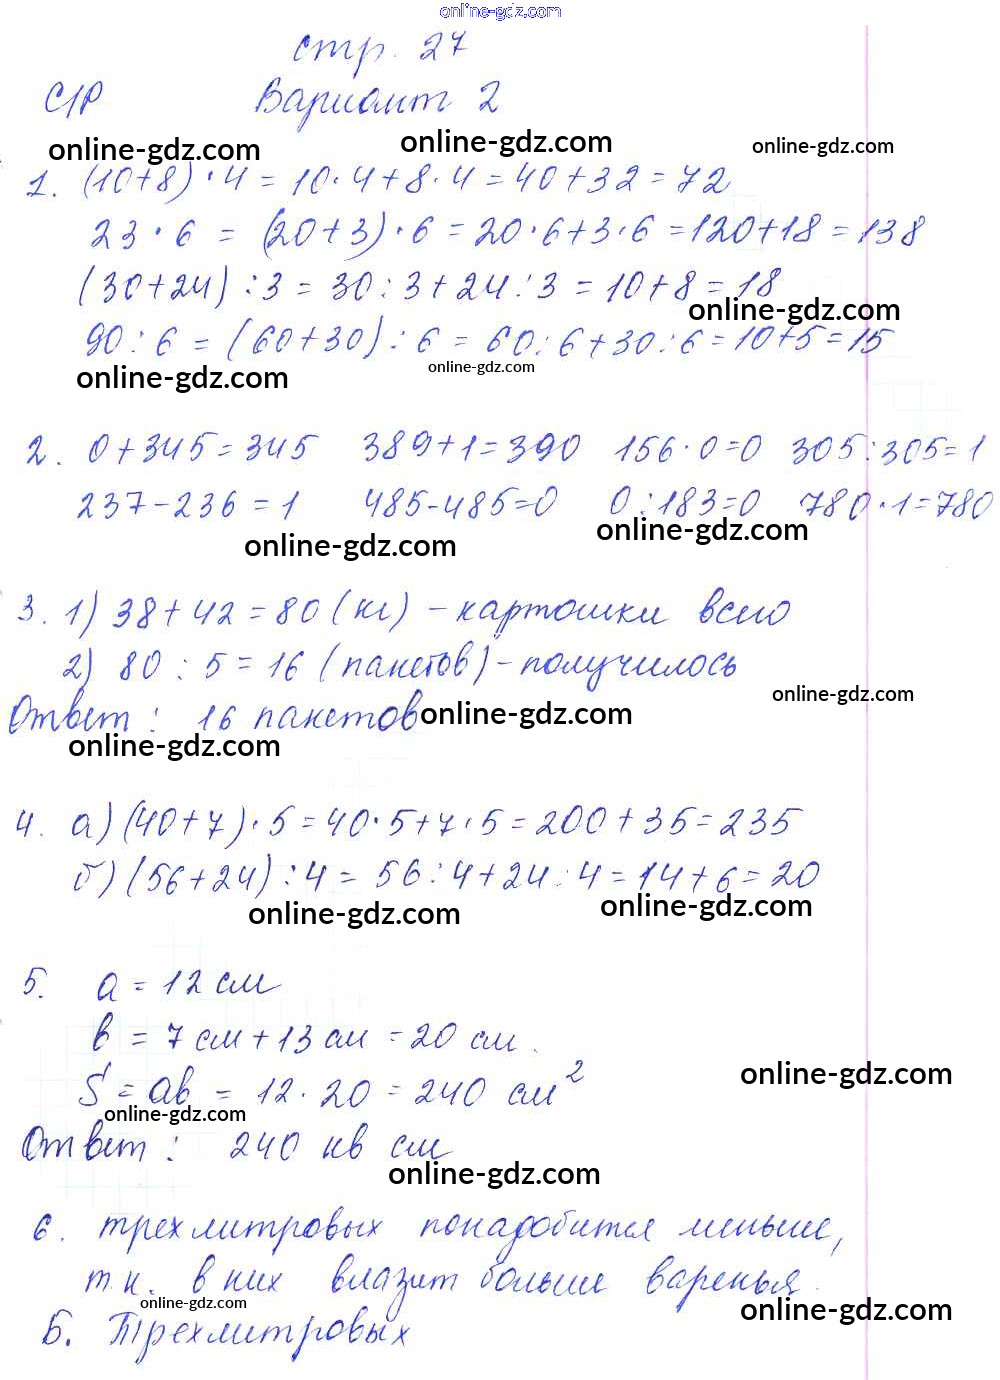 online-gdz.com
стр. 27
С/Р Вариант 2
online-gdz.com online-gdz.com online-gdz.com
1. (10+8)·4=10·4+8·4=40+32=72
23·6=(20+3)·6=20·6+3·6=120+18=138
(30+24):3=30:3+24:3=10+8=18
online-gdz.com
90:6=(60+30):6=60:6+30:6=10+5=15
online-gdz.com online-gdz.com
2. 0+345=345 389+1=390 156·0=0 305:305=1
237-236=1 485-485=0 0:183=0 780·1=780
online-gdz.com online-gdz.com
3. 1) 38+42=80 (кг) - картошки всего
2) 80:5=16 (пакетов) - получилось
online-gdz.com
Ответ: 16 пакетов online-gdz.com
online-gdz.com
4. а) (40+7)·5=40·5+7·5=200+35=235
б) (56+24):4=56:4+24:4=14+6=20
online-gdz.com online-gdz.com
5. a=12 см
b=7 см+13 см=20 см.
S=ab=12·20=240 см²
online-gdz.com
online-gdz.com
Ответ: 240 кв см
online-gdz.com
6. трехлитровых понадобится меньше,
т.к. в них влазит больше варенья.
online-gdz.com online-gdz.com
Б. Трехлитровых